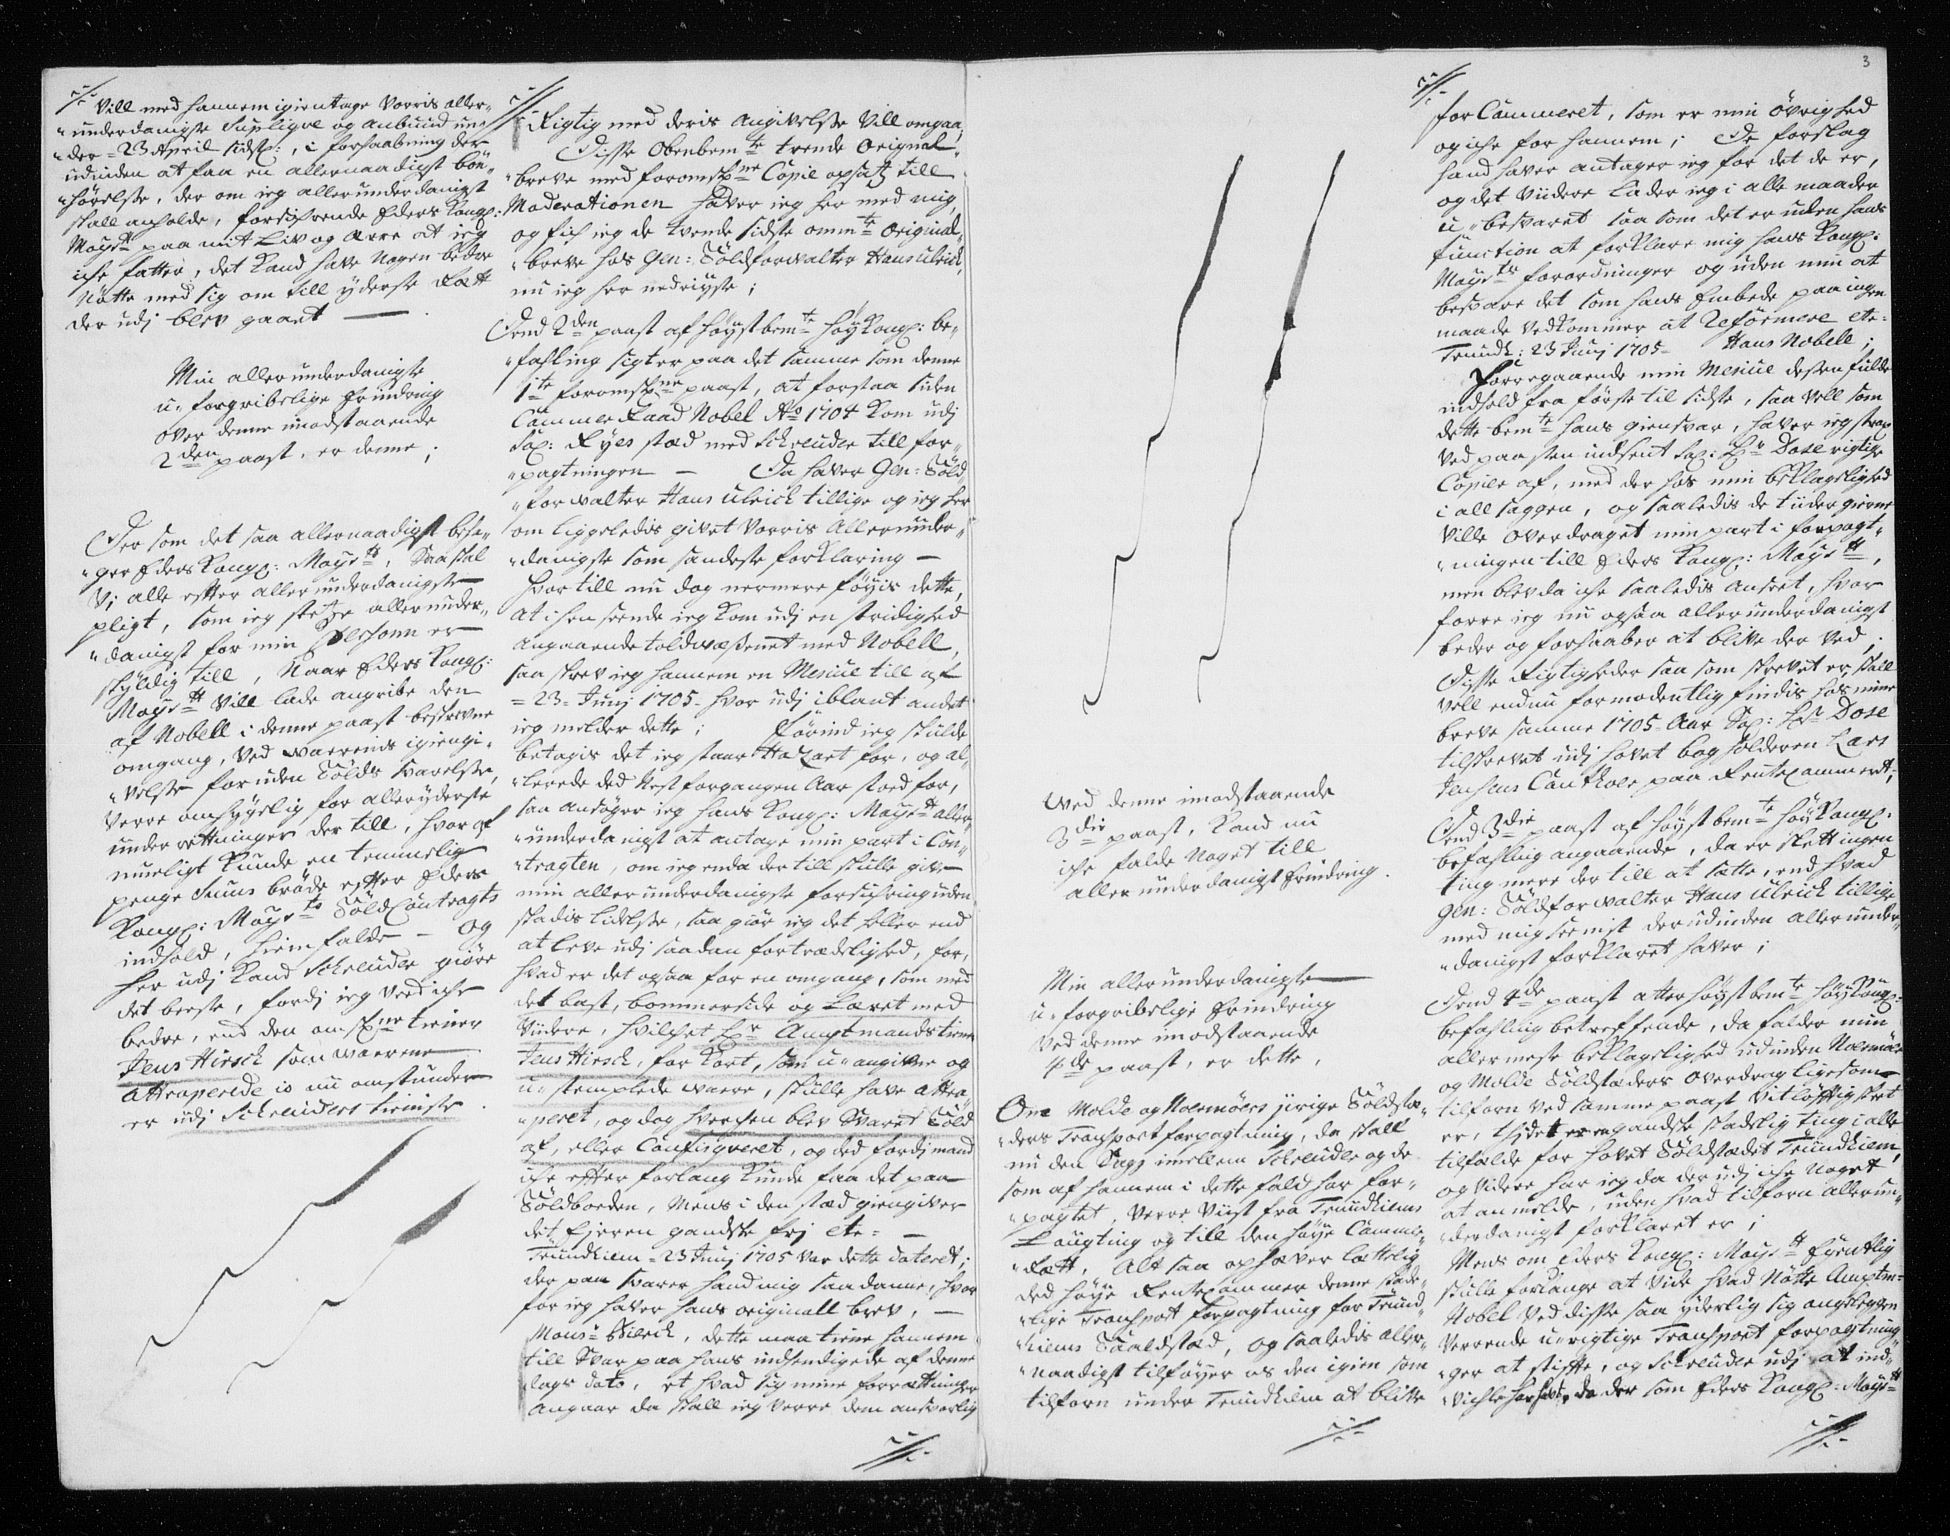 Vill med hannem igientage Vorris aller-
underdanigste Suplique og anbuud un-
der = 23 April sidst:, i forhaabning der
udinden at faa en allernaadigst bön-
hörelsse, der om jeg allerunderdanigst
skall anholde, forsichrende Eders Kongl:
Mayst paa mit Liv og Ærre at jeg
iche fatter, det kand have Nogen bedre
Nötte med sig om till yderste Rett
der udj blev gaaet
Min allerunderdanigste
u-forgribelige Erindring
over denne imodstaaende
2den paast, er denne;
Der som det saa allernaadigst beha-
ger Eders Kongl: Mayts, Saa skal
Vj alle effter allerunderdanigste
pligt, som jeg stetze allerunder-
danigst for min Persohn er
skyldig till, Naar Eders Kongl:
Mayst Vill lade angribe den
af Nobell i denne paast beskrevne
omgang, Ved waerends igiengi-
velsse foruden Tolds svarelsse,
Verre omhyggelig for aller yderste
under rettninger der till, hvor af
mueligt kunde en temmelig
penge Suus bröde effter Eders
Kongl: Mayts Told Contragts
indhold, hiemfalde - Og
her udj kand Schreuder giöre
det beste, fordj jeg Veed iche
bedre, end den omskne tiener
Jens Hirsch som waerene
attraperede io nu omstunder
er udj Schreuders tieniste
Rigtig med deris angivelsse Vill omgaa,
Disse Obenbemte trende Original
breve med foromskne Copie opsatz till
Moderationen haver jeg her med mig,
og fich jeg de tvende sidste ommte original
breve hos Gen: Toldforwalter Hans Ulrich,
nu jeg her nedreyste;
Dend 2den paast af höystbemte höy Kongl: be-
fahling sigter paa det samme som denne
1te foromskne paast, at forstaa siden
Cammer Raad Nobel Ao 1704 kom udj
Sal: Ryes stæd med Schreuder till for-
pagtningen - Da haver Gen: Told
forwalter Hans Ulrich tillige og jeg her
om ligeledis givet Vorris Allerunder-
danigste som sandeste forklaring -
hvor till nu dog nermere föyis dette,
at i henseende jeg kom udj en stridighed
angaaende toldwæßenet med Nobell,
saa skrev jeg hannem en Memie till af
= 23 - Junj 1705 - hvor udj iblant andet
jeg melder dette; Förind jeg skulde
betages det jeg staar Hazart for, og al-
lerede det Nest forgangen Aar stoed for,
saa ansöger jeg hans Kongl: Mayst aller-
underdanigst at antage min part i Con-
tragten, om jeg enda der till skulle give
min allerunderdanigste forsichring uden
skadis Lidelsse, saa giör jeg det heller end
at leve udj saadan fortrædelighed, for,
hvad er det ogsaa for en omgang, som med
det bast, bommerside og Læret med
Viidere, hvilchet Hr Amptmands tiener
Jens Hirsch, for kort, som u-angivne og
u-stemplede waere, skulle have attra-
peret, og dog hverchen blev Svaret Told
af, eller Confisqveret, og ded fordj mand
iche effter forlang kunde faa det paa
Toldboeden, Mens i den stæd giengiver
det Ejeren gandske frj etc: -
Trundhiem = 23 Junj 1705 var dette dateret;
der paa svarer hand mig saadanne, hvor
for jeg haver hans originall brev, -
Monsr Bilrich, dette maa tiene hannem
till Svar paa hans indsendigede af denne
dags dato, et hvad sig mine forrettninger
angaar da skall jeg Verre dem ansvarlig
Wed denne imodstaaende
3die paast, kand nu
iche falde Noget till
allerunderdanigst Erindring.
Min allerunderdanigste
u-forgribelige Erindring
Ved denne imodstaaende
4de paast, er dette,
Om Molde og Noermöers jirige Toldstæ-
ders Transport forpagtning, da skall
nu den Sagg imellem Schreuder og de
som af hannem i dette fald har for-
pagtet, Verre Viist fra Trundhiems
Laugting og till den höye Cammer
Rett, Alt saa ophæver lættelig
ded höye Rentecammer denne skade-
lige Transport forpagtning for Trund-
hiems Toldstæd, og saaledis aller-
naadigst tilföyer os den igien som
tilforn under Trundhiem at blifve
3
for Cammeret, som er min övrighed
og iche for hannem; De forslag
hand haver antager jeg for det de er,
og det viidere lader jeg i alle maader
u-besvaret saa som det er uden hans
function at forklare mig hans Kongl:
Mayts forordninger og uden min at
besvare det som hans Embede paa ingen
maade Vedkommer at Reformere etc:
Trundh: 23 Junj 1705 - Hans Nobell;
Forregaaende min Memie dessen fulde
indhold fra förste til sidste, saa vell som
dette bemte hans giensvar, haver jeg strax
Ved paasten indsent Sal: Hr Dose rigtige
Copier af, med der hos min beklagelighed
i all saggen, og saaledis de tiider gierne
Ville overdraget min part i forpagt-
ningen till Eders Kongl: Mayst,
men blev da iche saaledis anseet, hvor
forre jeg nu ogsaa allerunderdanigst
beder og forhaaber at blive der ved;
Disse Rigtigheder saa som skrevet er, skall
vell endnu formodentlig findis hos mine
breve samme 1705 - Aar Sal: Hr Dose
tilskrevet udj hovet bogholderen Lars
Jensens Contkoer paa Rentecammeret;
Dend 3die paast af höystbemte höy Kongl:
befahling angaaende, da er slett ingen
ting mere der till at sætte, end hvad
Gen: Toldforwalter Hans Ulrich tillige
med mig heenest derudinden allerunder-
danigst forklaret haver;
Dend 4de paast atter höystbemte höy Kongl:
befahling betreffende, da falder min
allermeste beklagelighed udinden Noermöer
og Molde Toldstæders overdrag ligesom
tilforn ved samme paast Vitlöfftig skret
er, thj det er en gandske skadelig ting i alle
tilfælde for hovet Toldstædet Trundhiem,
og videre har jeg da der udj iche Noget
at anmelde, uden hvad tilforn allerun-
derdanigst forklaret er;
Mens om Eders Kongl: Mayst Eyentlig
skulle forlange at vide hvad Nötte Amptm:
Nobel Ved disse saa yderlig sig angeleggen
Verrende u-rigtige Transport forpagtnin-
ger at stiffte, og Schreuder udj at ind-
vichle har havt, da der som Eders Kongl: Mayst